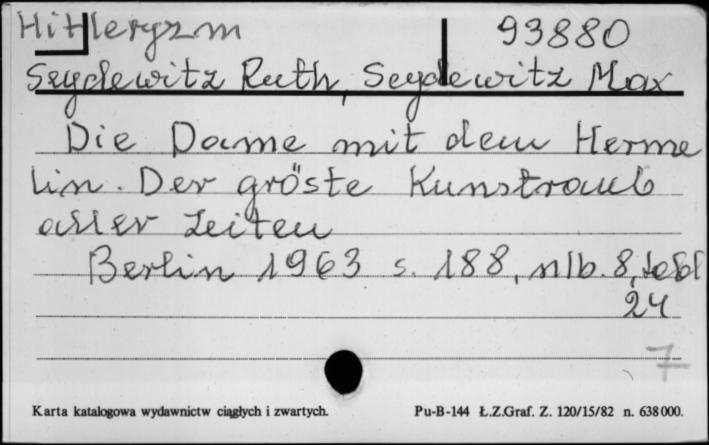 Hitleryzm 93880
Seydewitz Ruth, Seydewitz Max
Die Dame mit dem Herme
lin. Der gröste Kunstraub
aller Zeiten
Berlin 1963 s. 188, nlb. 8, tabl
24
7
Karta katalogowa wydawnictw ciągłych i zwartych. Pu-B-144 Ł.Z.Graf. Z. 120/15/82 n. 638000.